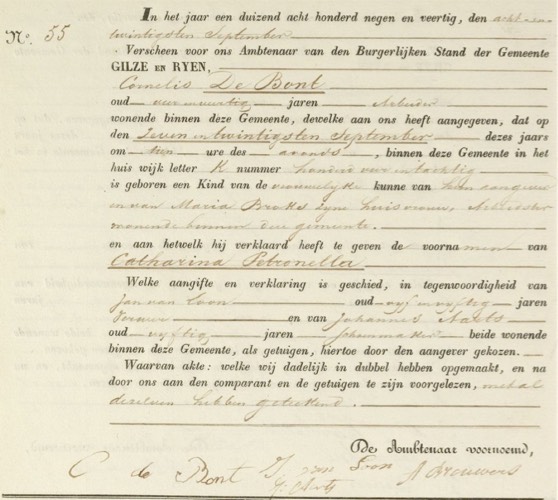 No. 55
In het jaar een duizend acht honderd negen en veertig, den acht en
twintigsten September
Verscheen voor ons Ambtenaar van den Burgerlijken Stand der Gemeente
GILZE EN RYEN,
Cornelis De Bont
oud vier en veertig jaren Arbeider
wonende binnen deze Gemeente, dewelke aan ons heeft aangegeven, dat op
den Zeven en twintigsten September dezes jaars
om tien ure des avonds, binnen deze Gemeente in het
huis wijk letter K nummer honderd vier en tachtig
is geboren een Kind van de vrouwelyke kunne van hem aangever
en van Maria Broks zyne huisvrouw, Arbeidster
wonende binnen deze gemeente.
en aan hetwelk hij verklaard heeft te geven de voornamen van
Catharina Petronella
Welke aangifte en verklaring is geschied, in tegenwoordigheid van
Jan van Loon oud vyf en vyftig jaren
en van Johannes Aarts
oud vyftig jaren Schoenmaker beide wonende
binnen deze Gemeente, als getuigen, hiertoe door den aangever gekozen.
Waarvan akte: welke wij dadelijk in dubbel hebben opgemaakt, en na
door ons aan den comparant en de getuigen te zijn voorgelezen, met al
dezelven hebben geteekend.
De Ambtenaar voornoemd,
C de Bont J. van Loon A Brouwers
J. Aarts